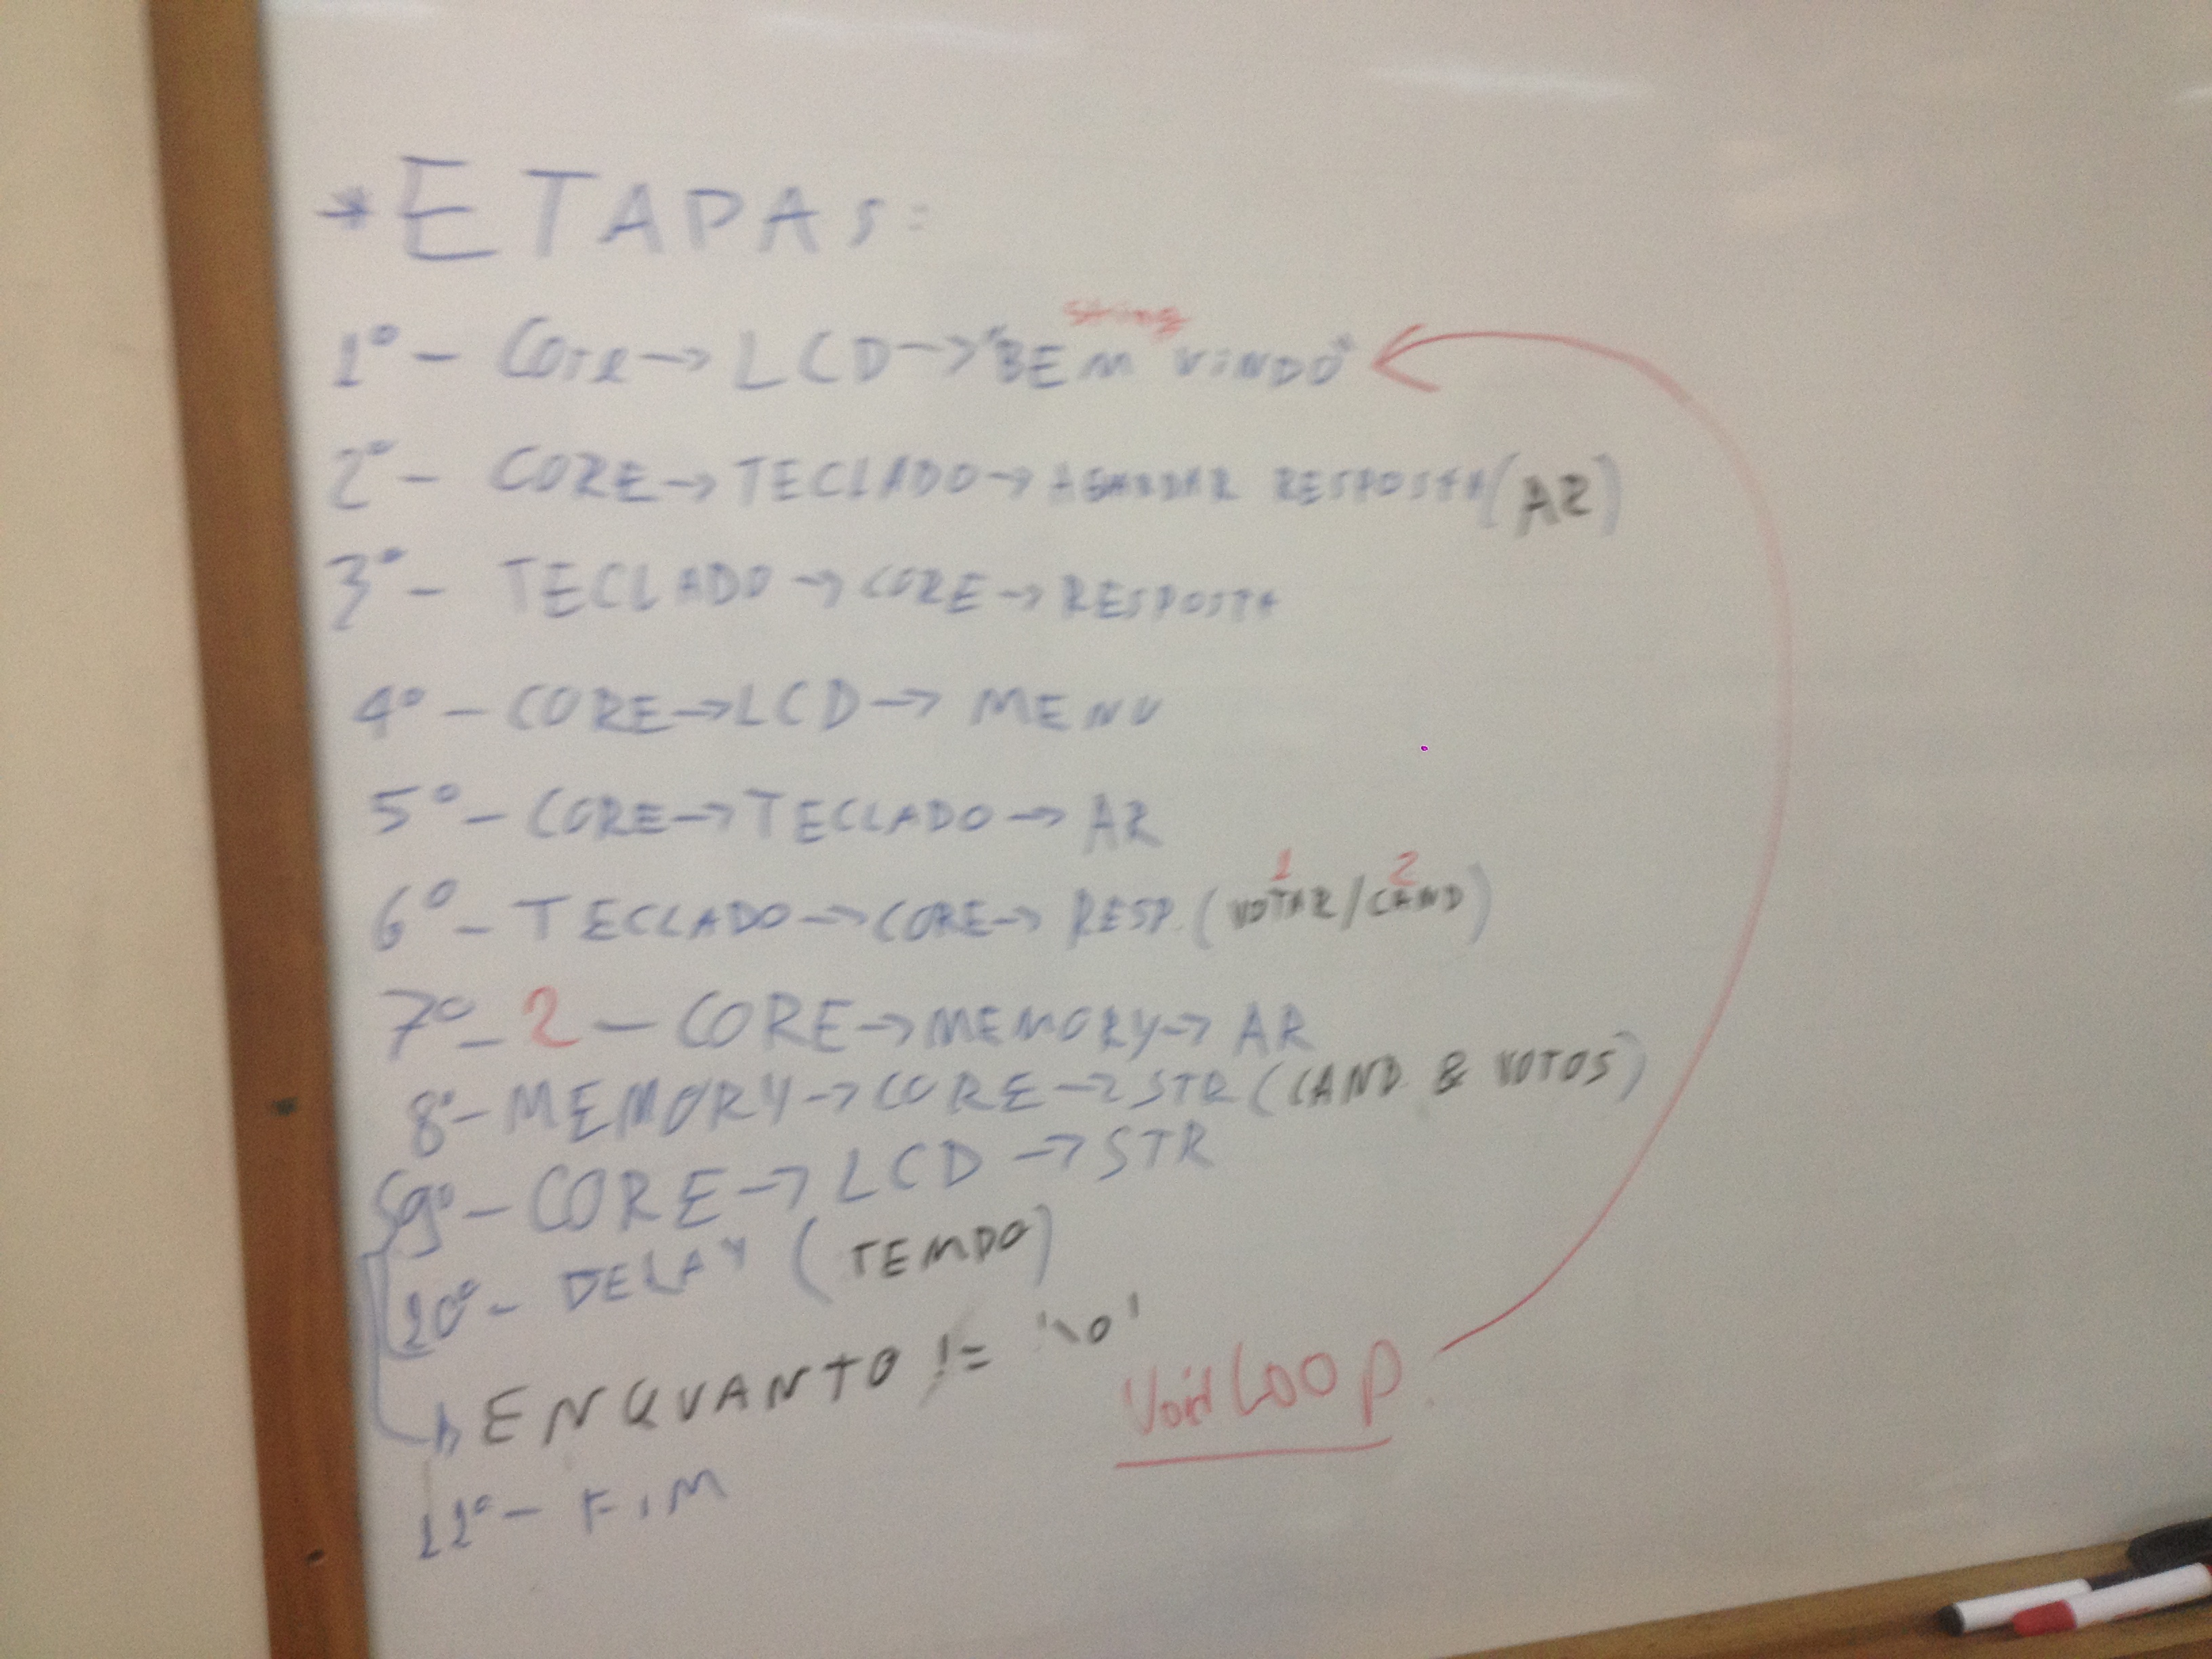 * ETAPAS:
string
1º - Core → LCD → "BEM VINDO"
2º - CORE → TECLADO → AGUARDAR RESPOSTA (AR)
3º - TECLADO → CORE → RESPOSTA
4º - CORE → LCD → MENU
5º - CORE → TECLADO → AR
1 2
6º - TECLADO → CORE → RESP. (VOTAR/CAND)
7º - 2 - CORE → MEMORY → AR
8º - MEMORY → CORE → STR (CAND. & VOTOS)
9º - CORE → LCD → STR
10º - DELAY (TEMPO)
ENQUANTO != '\0'
Void Loop
11º - FIM